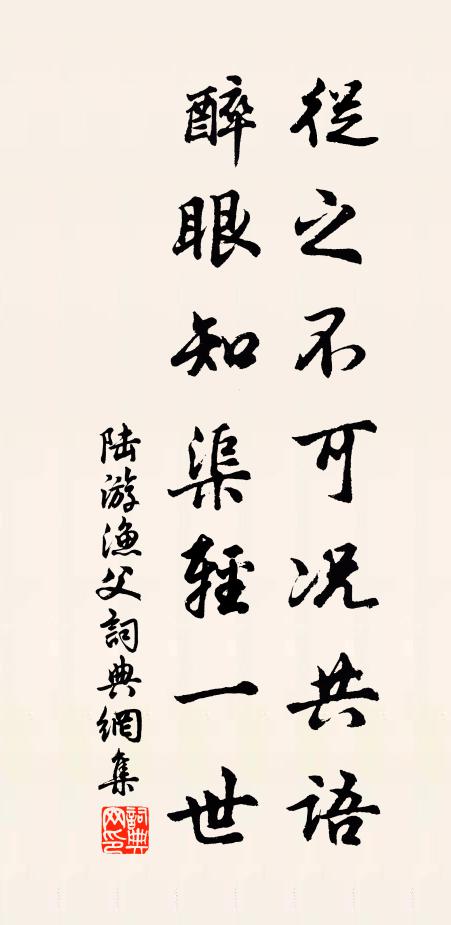 從之不可況共語
醉眼知渠輕一世
陆游渔父詞典網集
詞典网印